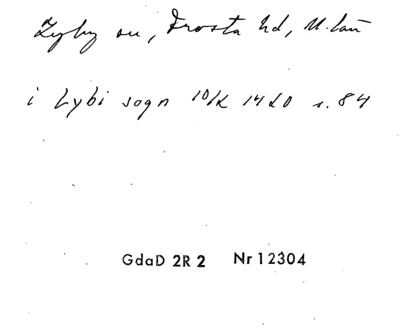 Lyby sn, Frosta hd, M.län
i Lybi sogn 10/2 1420 s. 84
GdaD 2R2 Nr 12304